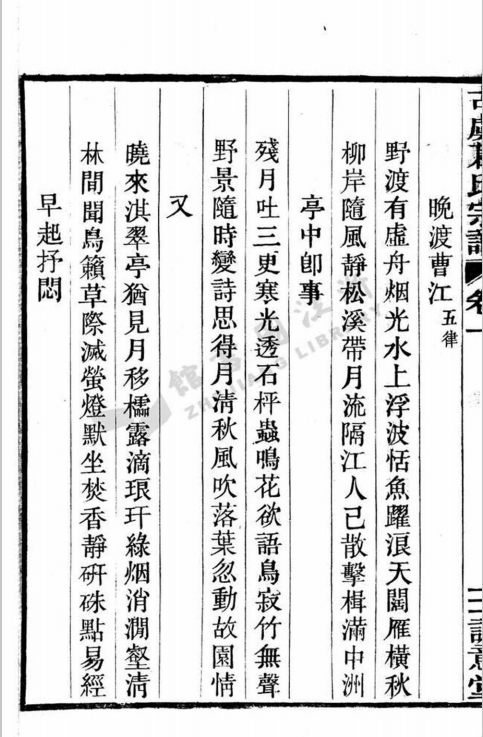 晚渡曹江五律
野渡有虛舟烟光水上浮波恬魚躍浪天闊雁橫秋
柳岸隨風靜松溪帶月流隔江人已散擊楫滿中洲
亭中卽事
殘月吐三更寒光透石枰蟲鳴花欲語鳥寂竹無聲
野景隨時變詩思得月清秋風吹落葉忽動故園情
又
曉來淇翠亭猶見月移櫺露滴琅玕綠烟消澗壑清
林間聞鳥籟草際滅螢燈默坐焚香靜硏硃點易經
早起抒悶
浙江圖書館
ZHEJIANG LIBRARY